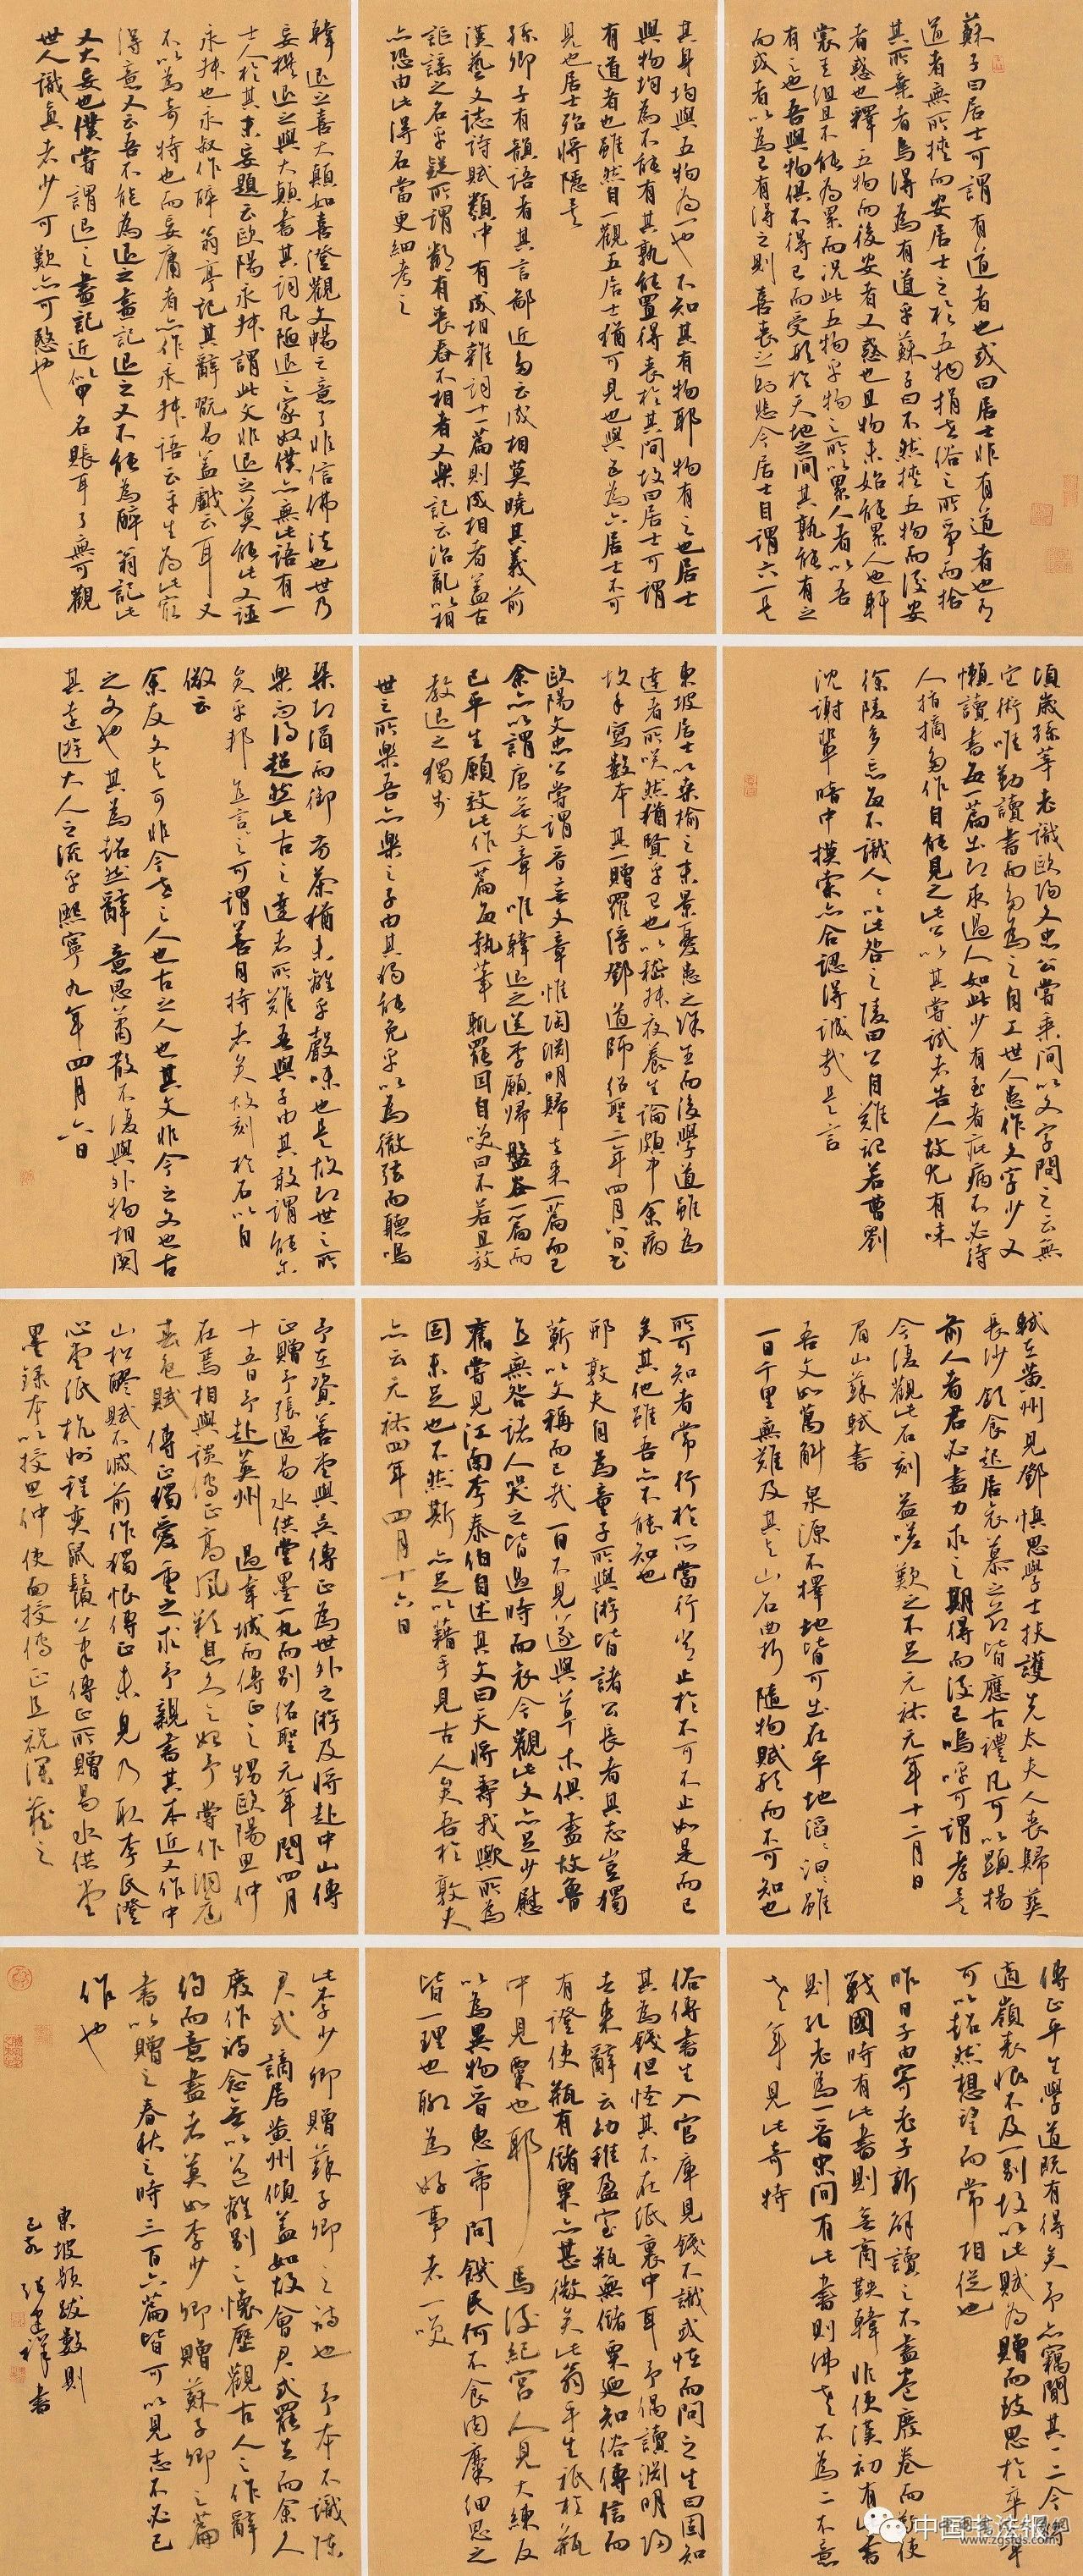 蘇子曰居士可謂有道者也或曰居士非有道者也有
道者無所挾而安居士之於五物捐世俗之所爭而拾
其所棄者烏得為有道乎蘇子曰不然挾五物而後安
者惑也釋五物而後安者又惑也且物未始能累人也軒
裳圭組且不能為累而況此五物乎物之所以累人者以吾
有之也吾與物俱不得已而受形於天地之間其孰能有之
而或者以為己有得之則喜喪之則悲今居士自謂六一是
其身均與五物為一也不知其有物耶物有之也居士
與物均為不能有其孰能置得喪於其間故曰居士可謂
有道者也雖然自一觀五居士猶可見也與五為六居士不可
見也居士殆將隱矣
孫卿子有韻語者其言鄙近多云成相莫曉其義前
漢藝文志詩賦類中有成相雜詞十一篇則成相者蓋古
謳謠之名乎疑所謂鄰有喪舂不相者又樂記云治亂以相
亦恐由此得名當更細考之
韓退之喜大顛如喜澄觀文暢之意了非信佛法也世乃
妄撰退之與大顛書其詞凡陋退之家奴僕亦無此語有一
士人於其末妄題云歐陽永叔謂此文非退之莫能此又誣
永叔也永叔作醉翁亭記其辭翫易蓋戲云耳又
不以為奇特也而妄庸者亦作永叔語云平生為此最
得意又云吾不能為退之畫記退之又不能為醉翁記此
又大妄也僕嘗謂退之畫記近似甲名賬耳了無可觀
世人識真者少可歎亦可愍也
頃歲孫莘老識歐陽文忠公嘗乘間以文字問之云無
它術唯勤讀書而多為之自工世人患作文字少又
懶讀書每一篇出即求過人如此少有至者疵病不必待
人指摘多作自能見之此公以其嘗試者告人故尤有味
徐陵多忘每不識人人以此咎之陵曰公自難記若曹劉
沈謝輩暗中摸索亦合認得誠哉是言
東坡居士以桑榆之末景憂患之餘生而後學道雖為
達者所笑然猶賢乎已也以嵇叔夜養生論頗中余病
故手寫數本其一贈羅浮鄧道師紹聖二年四月八日書
歐陽文忠公嘗謂晉無文章惟陶淵明歸去來一篇而已
余亦以謂唐無文章唯韓退之送李願歸盤谷一篇而
已平生願效此作一篇每執筆輒罷因自笑曰不若且放
教退之獨步
世之所樂吾亦樂之子由其獨能免乎以為徹弦而聽鳴
琴却酒而御芳茶猶未離乎聲味也是故即世之所
樂而得超然此古之達者所難吾與子由其敢謂能爾
矣乎邦直之言可謂善自持者矣故刻於石以自
儆云
余友文與可非今世之人也古之人也其文非今之文也古
之文也其為超然辭意思蕭散不復與外物相關
其遠遊大人之流乎熙寧九年四月六日
軾在黃州見鄧慎思學士扶護先太夫人喪歸葬
長沙飲食起居哀慕之節皆應古禮凡可以顯揚
前人者君必盡力求之期得而後已嗚呼可謂孝矣
今復觀此石刻益嗟歎之不足元祐元年十二月日
眉山蘇軾書
吾文如萬斛泉源不擇地皆可出在平地滔滔汩汩雖
一日千里無難及其與山石曲折隨物賦形而不可知也
所可知者常行於所當行常止於不可不止如是而已
矣其他雖吾亦不能知也
邢敦夫自為童子所與游皆諸公長者其志豈獨
蘄以文稱而已哉一日不見遂與草木俱盡故魯
直無咎諸人哭之皆過時而哀今觀此文亦足少慰
舊嘗見江南李泰伯自述其文曰天將壽我歟所為
固未足也不然斯亦足以藉手見古人矣吾於敦夫
亦云元祐四年四月十六日
予在資善堂與吳傳正為世外之游及將赴中山傳
正贈予張遇易水供堂墨一丸而別紹聖元年閏四月
十五日予赴英州過韋城而傳正之甥歐陽思仲
在焉相與談傳正高風歎息久之始予嘗作洞庭
春色賦傳正獨愛重之求予親書其本近又作中
山松醪賦不減前作獨恨傳正未見乃取李氏澄
心堂紙杭州程奕鼠鬚筆傳正所贈易水供堂
墨錄本以授思仲使面授傳正且祝深藏之
傳正平生學道既有得矣予亦竊聞其一二今將
適嶺表恨不及一別故以此賦為贈而致思於卒章
可以超然想望而常相從也
昨日子由寄老子新解讀之不盡卷廢卷而歎使
戰國時有此書則無商鞅韓非使漢初有此書
則孔老為一晉宋間有此書則佛老不為二不意
老年見此奇特
俗傳書生入官庫見錢不識或怪而問之生曰固知
其為錢但怪其不在紙裏中耳予偶讀淵明歸
去來辭云幼稚盈室瓶無儲粟廼知俗傳信而
有證使瓶有儲粟亦甚微矣此翁平生祇於瓶
中見粟也耶馬後紀宮人見大練反
以為異物晉惠帝問饑民何不食肉糜細思之
皆一理也聊為好事者一笑
此李少卿贈蘇子卿之詩也予本不識陳
君式謫居黃州傾蓋如故會君式罷去而余久
廢作詩念無以道離別之懷歷觀古人之作辭
約而意盡者莫如李少卿贈蘇子卿之篇
書以贈之春秋之時三百六篇皆可以見志不必己
作也
東坡題跋數則
己亥
書
中国书法报网
www.zgsfgs.com